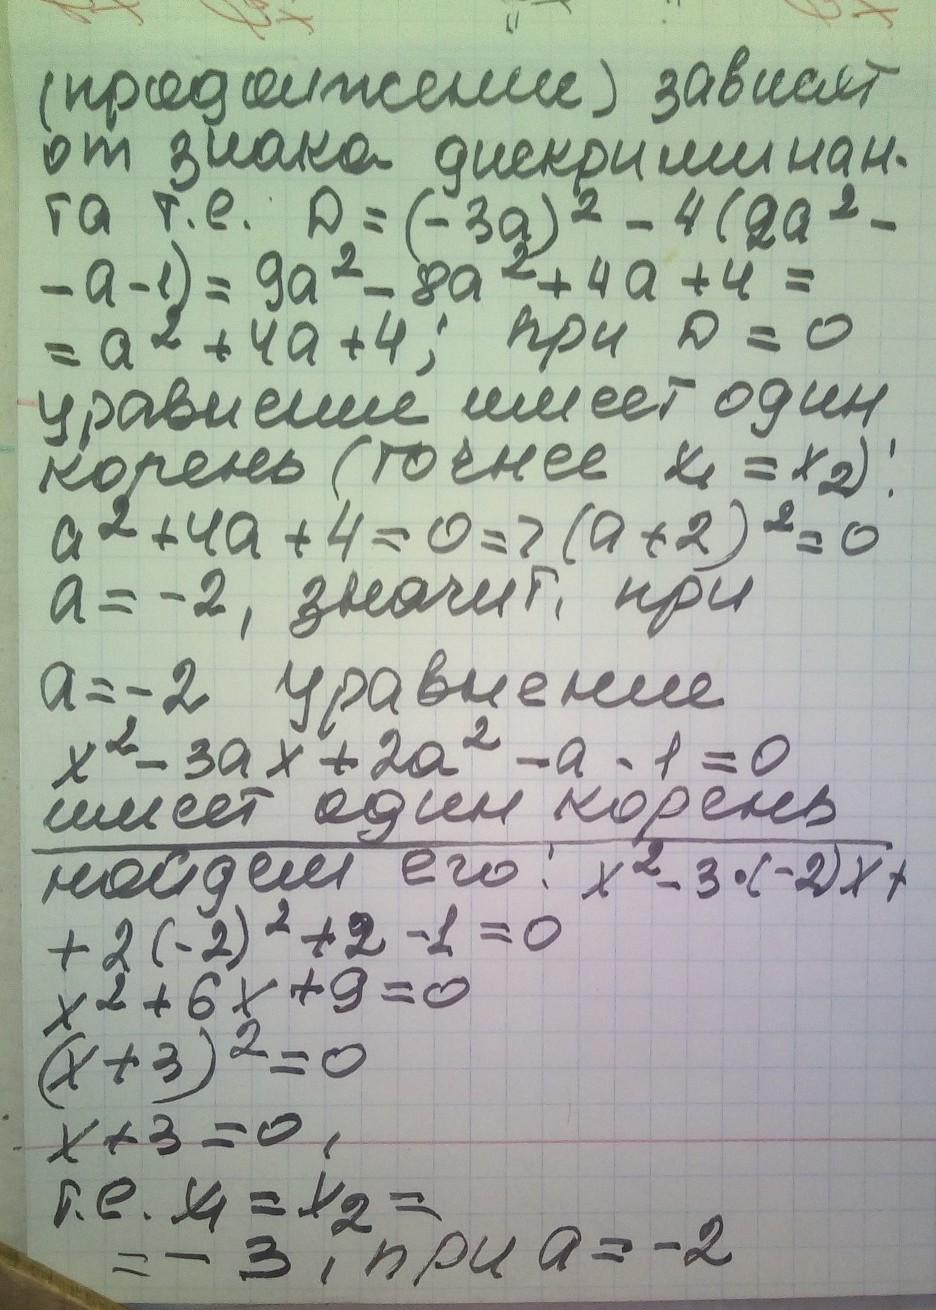 (продолжение) зависят
от знака дискриминан-
та т.е. D = (-3a)² - 4(2a² -
- a - 1) = 9a² - 8a² + 4a + 4 =
= a² + 4a + 4; при D = 0
уравнение имеет один
корень (точнее x₁ = x₂):
a² + 4a + 4 = 0 => (a + 2)² = 0
a = -2, значит, при
a = -2 уравнение
x² - 3ax + 2a² - a - 1 = 0
имеет один корень
найдем его: x² - 3·(-2)x +
+ 2(-2)² + 2 - 1 = 0
x² + 6x + 9 = 0
(x + 3)² = 0
x + 3 = 0,
т.е. x₁ = x₂ =
= - 3, при a = -2